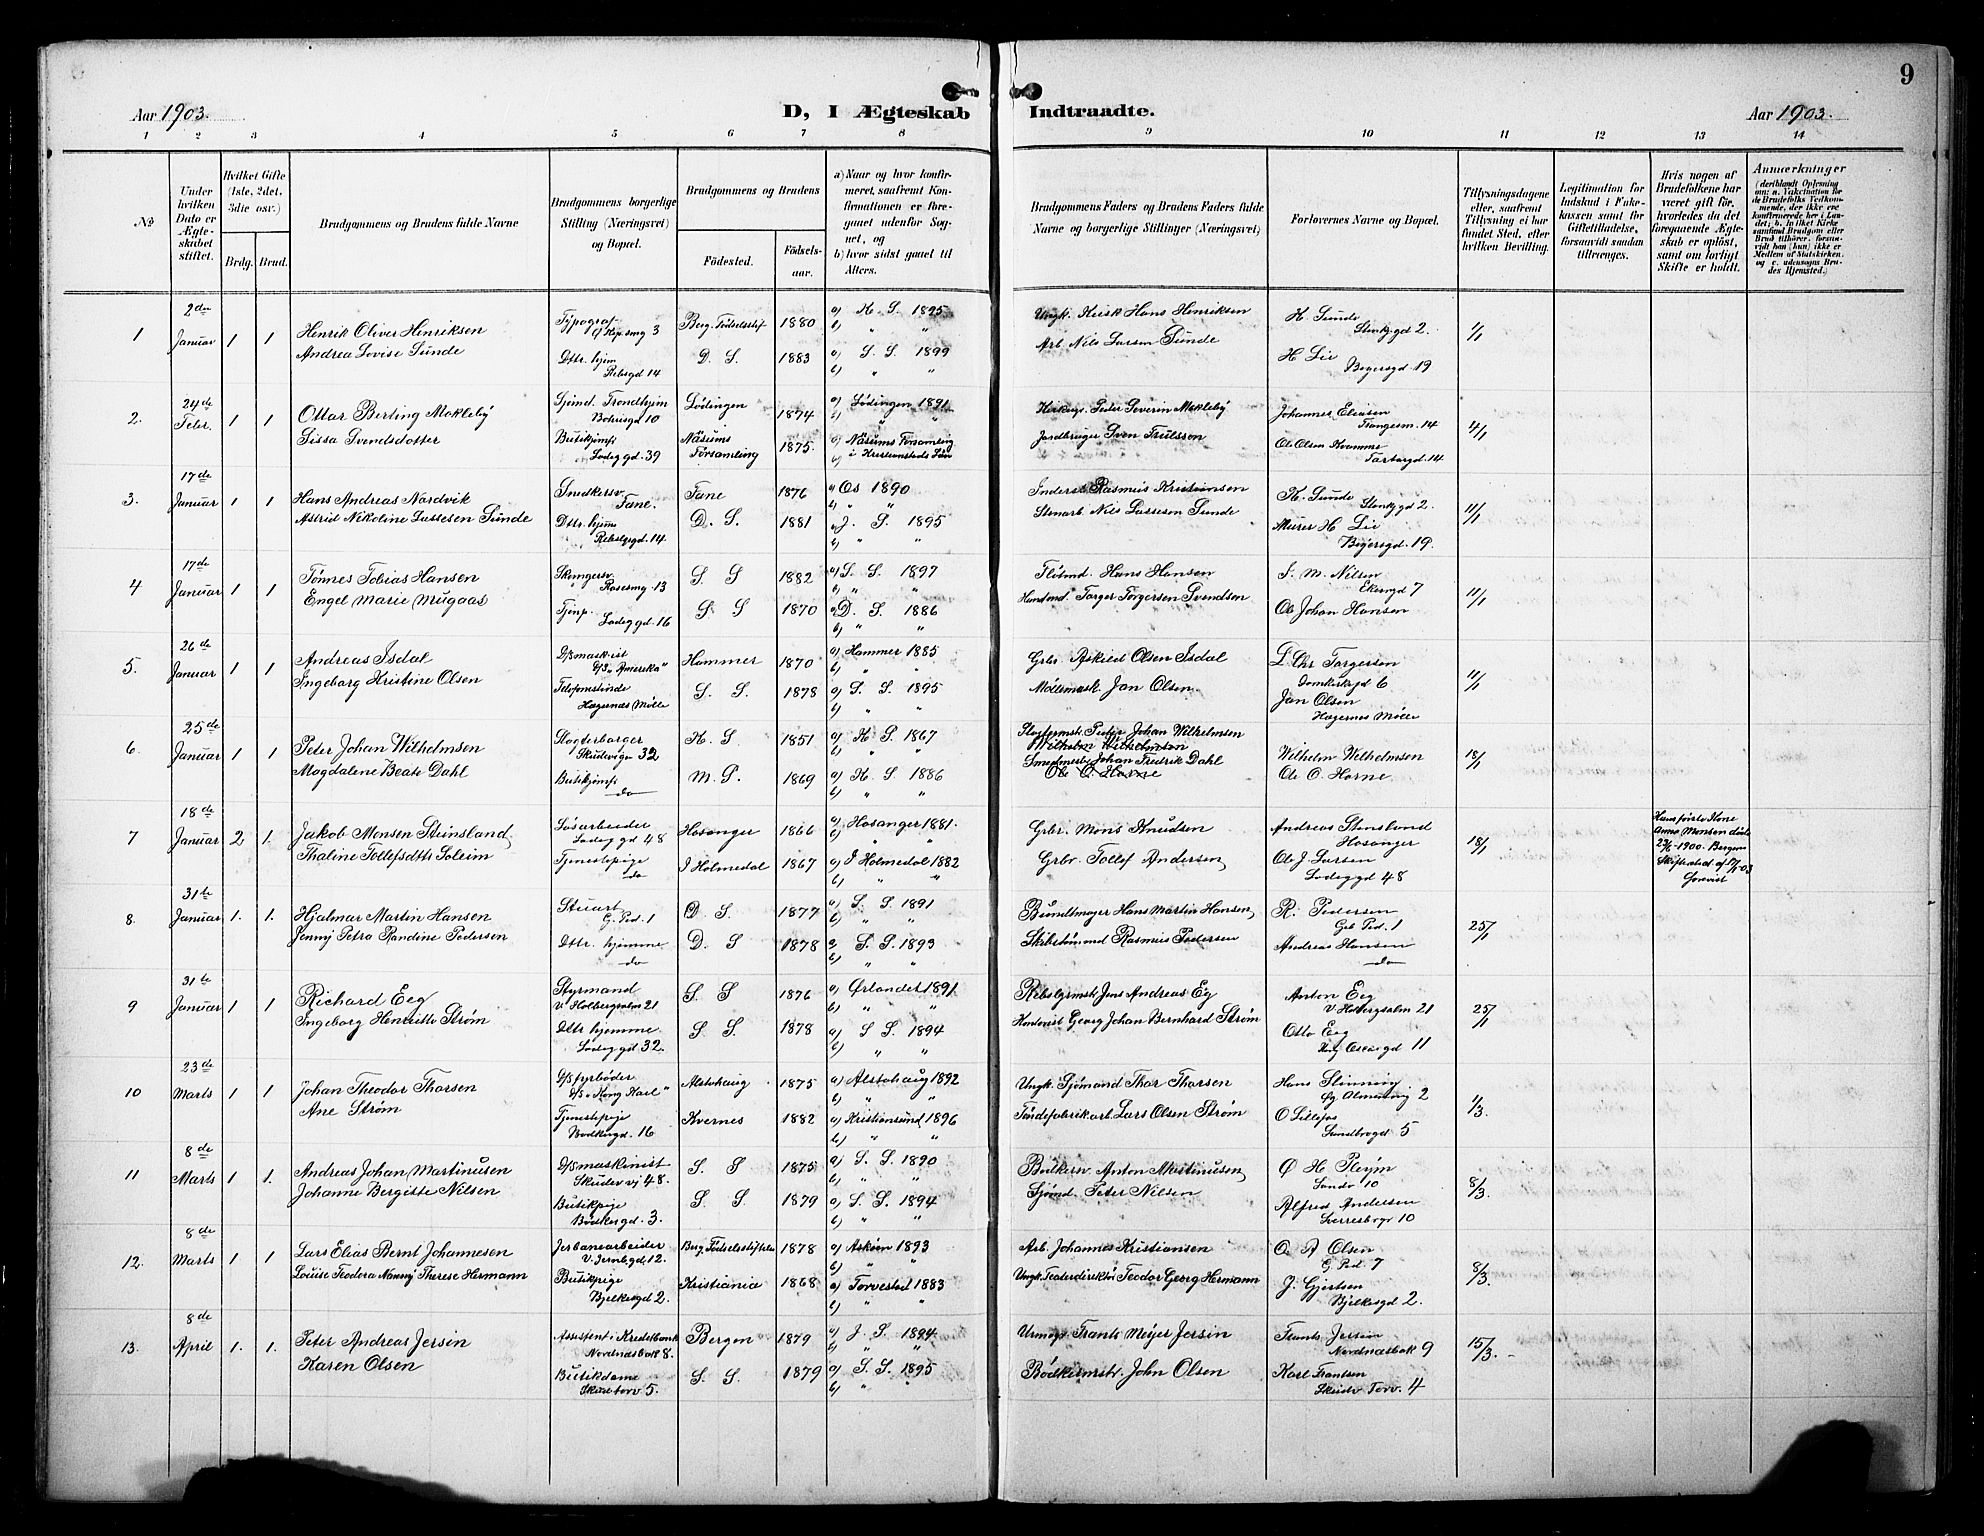 9
Aar 1903.
D, I Ægteskab Indtraadte.
Aar 1903.
1 2 3 4 5 6 7 8 9 10 11 12 13 14
No
Under hvilken Dato er Ægteskabet stiftet.
Hvilket Gifte (1ste, 2det, 3die osv.)
Brdg. Brud.
Brudgommens og Brudens fulde Navne
Brudgommens borgerlige Stilling (Næringsvei) og Bopæl.
Brudgommens og Brudens
Fødested. Fødselsaar.
a) Naar og hvor konfirmeret, saafremt Konfirmationen er foregaaet udenfor Sognet, og
b) hvor sidst gaaet til Alters.
Brudgommens Faders og Brudens Faders fulde Navne og borgerlige Stillinger (Næringsvei)
Forlovernes Navne og Bopæl.
Tillysningsdagene eller, saafremt Tillysning ei har fundet Sted, efter hvilken Bevilling.
Legitimation for Indskud i Enkekassen samt for Giftetilladelse, forsaavidt saadan tiltrænges.
Hvis nogen af Brudefolkene har været gift før, hvorledes da det foregaaende Ægteskab er opløst, samt om lovligt Skifte er holdt.
Anmærkninger
1 2den Januar 1 1
Henrik Oliver Henriksen
Andrea Lovise Sunde
Typograf
Berg. Fødselsstif. 1880
a) K. S. 1895
Dttr. hjem
Rebsgd 14
D. S. 1883
a) S. S. 1899
Ungk. Kusk Hans Henriksen
Arb. Nils Larsen Sunde
H Sunde
Stenkjgd 2.
H Lie
Beyersgd 19
1/1
2. 24de Febr. 1 1
Ottar Berting Mokleby
Sissa Svendsdotter
Sjömd. Trondhjem
Lødingen 1874
a) Lødingen 1891
Butikjomf.
Ladeg gd. 39
Näsums Församling 1875.
a) Näsums Forsamling
i Kristianstads Län
Kirkesgr. Peder Severin Mokleby
Jordbruger Sven Trulsson
Johannes Eliasen
Ole Olsen Kvamme
Tartargd. 14
4/1
3. 17de Januar 1 1
Hans Andreas Nordvik
Astrid Nikoline Lassesen Sunde
Snedkersv.
Fane.
Fane 1876
a) Os 1890
Dttr. hjem
Rebslgsgd. 14
D. S. 1881
a) J. S. 1895
Inders. Rasmus Kristiansen
Stenarb. Nils Lassesen Sunde
H. Sunde
Stenkjgd 2.
Murer H Lie
Beyersgd. 19.
11/1
4 17de Januar 1 1
Tønnes Tobias Hansen
Engel Marie Mugaas
Rosesmg 13
S. S 1882
a) S. S. 1897
Tjenp.
Ladeggd. 16
S. S 1870
a) D. S. 1886
Flötmd. Hans Hansen
Torger Torgersen Svendsen
S. M. Nilsen
Ekrengd 7
Ole Johan Hansen
11/1
5. 26de Januar 1 1
Andreas Isdal
Ingeborg Kristine Olsen
D/Smaskist
D/S „Amerika"
Hammer 1870
a) Hammer 1885
Hægernes Mølle
S. S. 1878
a) S. S. 1895
Grbr. Askild Olsen Isdal
Møllemask. Jan Olsen.
L. Chr Torgersen
Domkirkegd 6
Jan Olsen
Hægernes Mølle
11/1
6. 25de Januar 1 1
Peter Johan Wilhelmsen
Magdalene Beate Dahl
Slagterborger
Skudevigen 32
K. S 1851
a) K S. 1867
Butikjomf.
do
M. S. 1869
a) K. S. 1886
Slagtermstr. Peter Johan Wilhelmsen
Wilhelm Wilhelmsen
Smedmester Johan Fredrik Dahl
Ole O. Horne
Wilhelm Wilhelmsen
Ole O. Horne
18/1
7 18de Januar 2 1.
Jakob Monsen Steinsland
Thaline Tollefsdttr Soleim
Løsarbeider
Ladeg gd 48
Hosanger 1866
a) Hosanger 1881.
Tjenestepige
do
I Holmedal 1867
a) I Holmedal 1882
Grbr. Mons Knudsen
Grbr. Tollef Andersen
Andreas Stensland
Hosanger
Ole J. Larsen
Ladeg gd 48
18/1
Hans første Kone
Anna Monsen døde
1900. Bergen
8. 31te Januar 1. 1.
Hjalmar Martin Hansen
Jenny Petra Randine Pedersen
Stuart
G. Pad. 1
D. S. 1877
a) S. S. 1891
Dttr. hjemme
do
D. S 1878
a) S. S. 1893
Bundtmager Hans Martin Hansen,
Skibstømmd Rasmus Pedersen
R. Pedersen
Andreas Hansen
do
25/1
9 31te Januar 1 1
Richard Eeg
Ingeborg Henriette Strøm
Styrmand
V. Holbergsalm 21
S. S 1876
a) Ørlandet 1891
Dttr hjemme
Ladeg gd 32.
S. S. 1878
a) S S. 1894
Rebslgrmstr Jens Andreas Eg
Georg Johan Bernhard Strøm
Anton Eeg
V. Holbergsalm 21
Otto Eeg
Kong Oscars gd 11
25/1
10 23de Marts 1 1
Johan Theodor Thorsen
Ane Strøm
D/S fyrbøder
D/S „Kong Karl"
Alstahaug 1875
a) Alstahaug 1892
Tjenestepige
Bødkergd. 16
Kvernes 1882
a) Kristiansund 1896
Ungk. Sjømand Thor Thorsen
Tøndefabrikarb. Lars Olsen Strøm
Hans Slinning
Almening 2
O Lillefos
Sandbrogd 5
1/3.
11 8de Marts 1 1.
Andreas Johan Martinusen
Johanne Bergitte Nilsen
D/Smaskinist
Skudev vj 48.
S. S 1875
a) S. S. 1890
Butikpige
Bødkergd. 3.
S. S 1879
a) S. S. 1894
Bødkersv. Anton Martinusen,
Sjömd. Peter Nilsen
Ø H. Pleym
Sandv 10
Alfred Andersen
Sverresborg 10
8/3.
12. 8de Marts 1 1
Lars Elias Bernt Johannesen
Louise Teodora Nanny Therese Hermann
Jerbanearbeider
V. Jernbgd 12.
Berg. Fødselsstiftelse 1878
a) Askøen 1893
Butikpige
Bjelkesgd 2.
Kristiania 1868
a) Torvestad 1883
Arb. Johannes Kristiansen
Ungk. Teaterdirektør Teodor Georg Hermann
O. A Olsen
G. Pad. 7
J. Gjertsen
Bjelkesgd 2.
8/3.
13. 8de April 1. 1.
Peter Andreas Jersin
Karen Olsen
Assistent i Kreditbank
Nordnæsbak 8.
Bergen 1879
a) J. S. 1894
Butikdame
Skudetorv 5.
S. S. 1879
a) S. S. 1895
Urmag. Frants Meyer Jersin
Bødkermstr. John Olsen
Frants Jersin
Nordnæsbak 9
Karl Frantsen
Skudev Torv. 4
15/3.